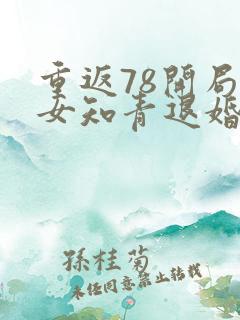 重返78開局
女知青退婚
孫桂菊
未经同意禁止转载